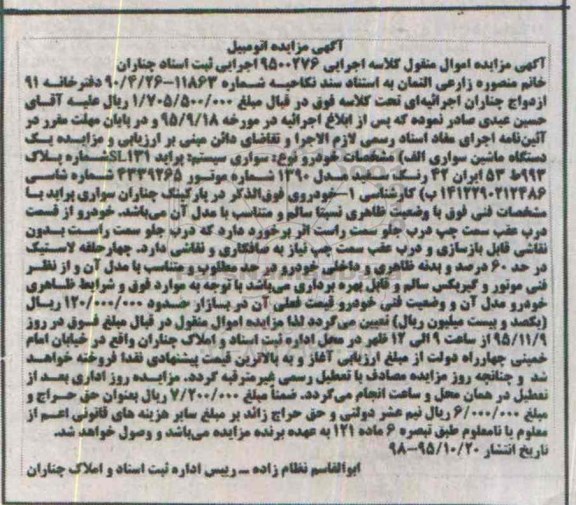 آگهی مزایده اتومبیل
آگهی مزایده اموال منقول کلاسه اجرایی ۹۵۰۰۲۷۶ اجرایی ثبت اسناد چناران
خانم منصوره زارعی التمان به استناد سند نکاحیه شماره ۱۱۸۶۳–۹۰/۴/۲۶ دفترخانه ۹۱
ازدواج چناران اجرائیه‌ای تحت کلاسه فوق در قبال مبلغ ۱/۷۰۵/۵۰۰/۰۰۰ ریال علیه آقای
حسین عیدی صادر نموده که پس از ابلاغ اجرائیه در مورخه ۹۵/۹/۱۸ و در پایان مهلت مقرر در
آئین‌نامه اجرای مفاد اسناد رسمی لازم الاجرا و تقاضای دائن مبنی بر ارزیابی و مزایده یک
دستگاه ماشین سواری الف) مشخصات خودرو نوع: سواری سیستم: پراید SL۱۳۱ شماره پلاک
۹۹۳ط ۵۳ ایران ۴۲ رنگ سفید مدل ۱۳۹۰ شماره موتور ۴۳۳۹۲۶۵ شماره شاسی
۱۴۱۲۲۹۰۲۱۲۴۸۶ ب) کارشناسی ۱–خودروی فوق‌الذکر در پارکینگ چناران سواری پراید با
مشخصات فنی فوق با وضعیت ظاهری نسبتا سالم و متناسب با مدل آن می‌باشد. خودرو از قسمت
درب عقب سمت چپ درب جلو سمت راست اثر برخورد دارد که درب جلو سمت راست بدون
نقاشی قابل بازسازی و درب عقب سمت چپ نیاز به صافکاری و نقاشی دارد. چهارحلقه لاستیک
در حد ۶۰ درصد و بدنه ظاهری و داخلی خودرو در حد مطلوب و متناسب با مدل آن و از نظر
فنی موتور و گیربکس سالم و قابل بهره برداری می‌باشد با توجه به موارد فوق و شرایط ظاهری
خودرو مدل آن و وضعیت فنی خودرو قیمت فعلی آن در بازار حدود ۱۲۰/۰۰۰/۰۰۰ ریال
(یکصد و بیست میلیون ریال) تعیین می‌گردد لذا مزایده اموال منقول در قبال مبلغ فوق در روز
۹۵/۱۱/۹ از ساعت ۹ الی ۱۲ ظهر در محل اداره ثبت اسناد و املاک چناران واقع در خیابان امام
خمینی چهارراه دولت از مبلغ ارزیابی آغاز و به بالاترین قیمت پیشنهادی نقدا فروخته خواهد
شد و چنانچه روز مزایده مصادف با تعطیل رسمی غیرمترقبه گردد. مزایده روز اداری بعد از
تعطیل در همان محل و ساعت انجام می‌گردد. ضمناً مبلغ ۷/۲۰۰/۰۰۰ ریال بعنوان حق حراج و
مبلغ ۶/۰۰۰/۰۰۰ ریال نیم عشر دولتی و حق حراج زائد بر مبلغ سایر هزینه های قانونی اعم از
معلوم یا نامعلوم طبق تبصره ۶ ماده ۱۲۱ به عهده برنده مزایده می‌باشد و وصول خواهد شد.
تاریخ انتشار ۹۵/۱۰/۲۰–۹۸
ابوالقاسم نظام زاده ــ رییس اداره ثبت اسناد و املاک چناران